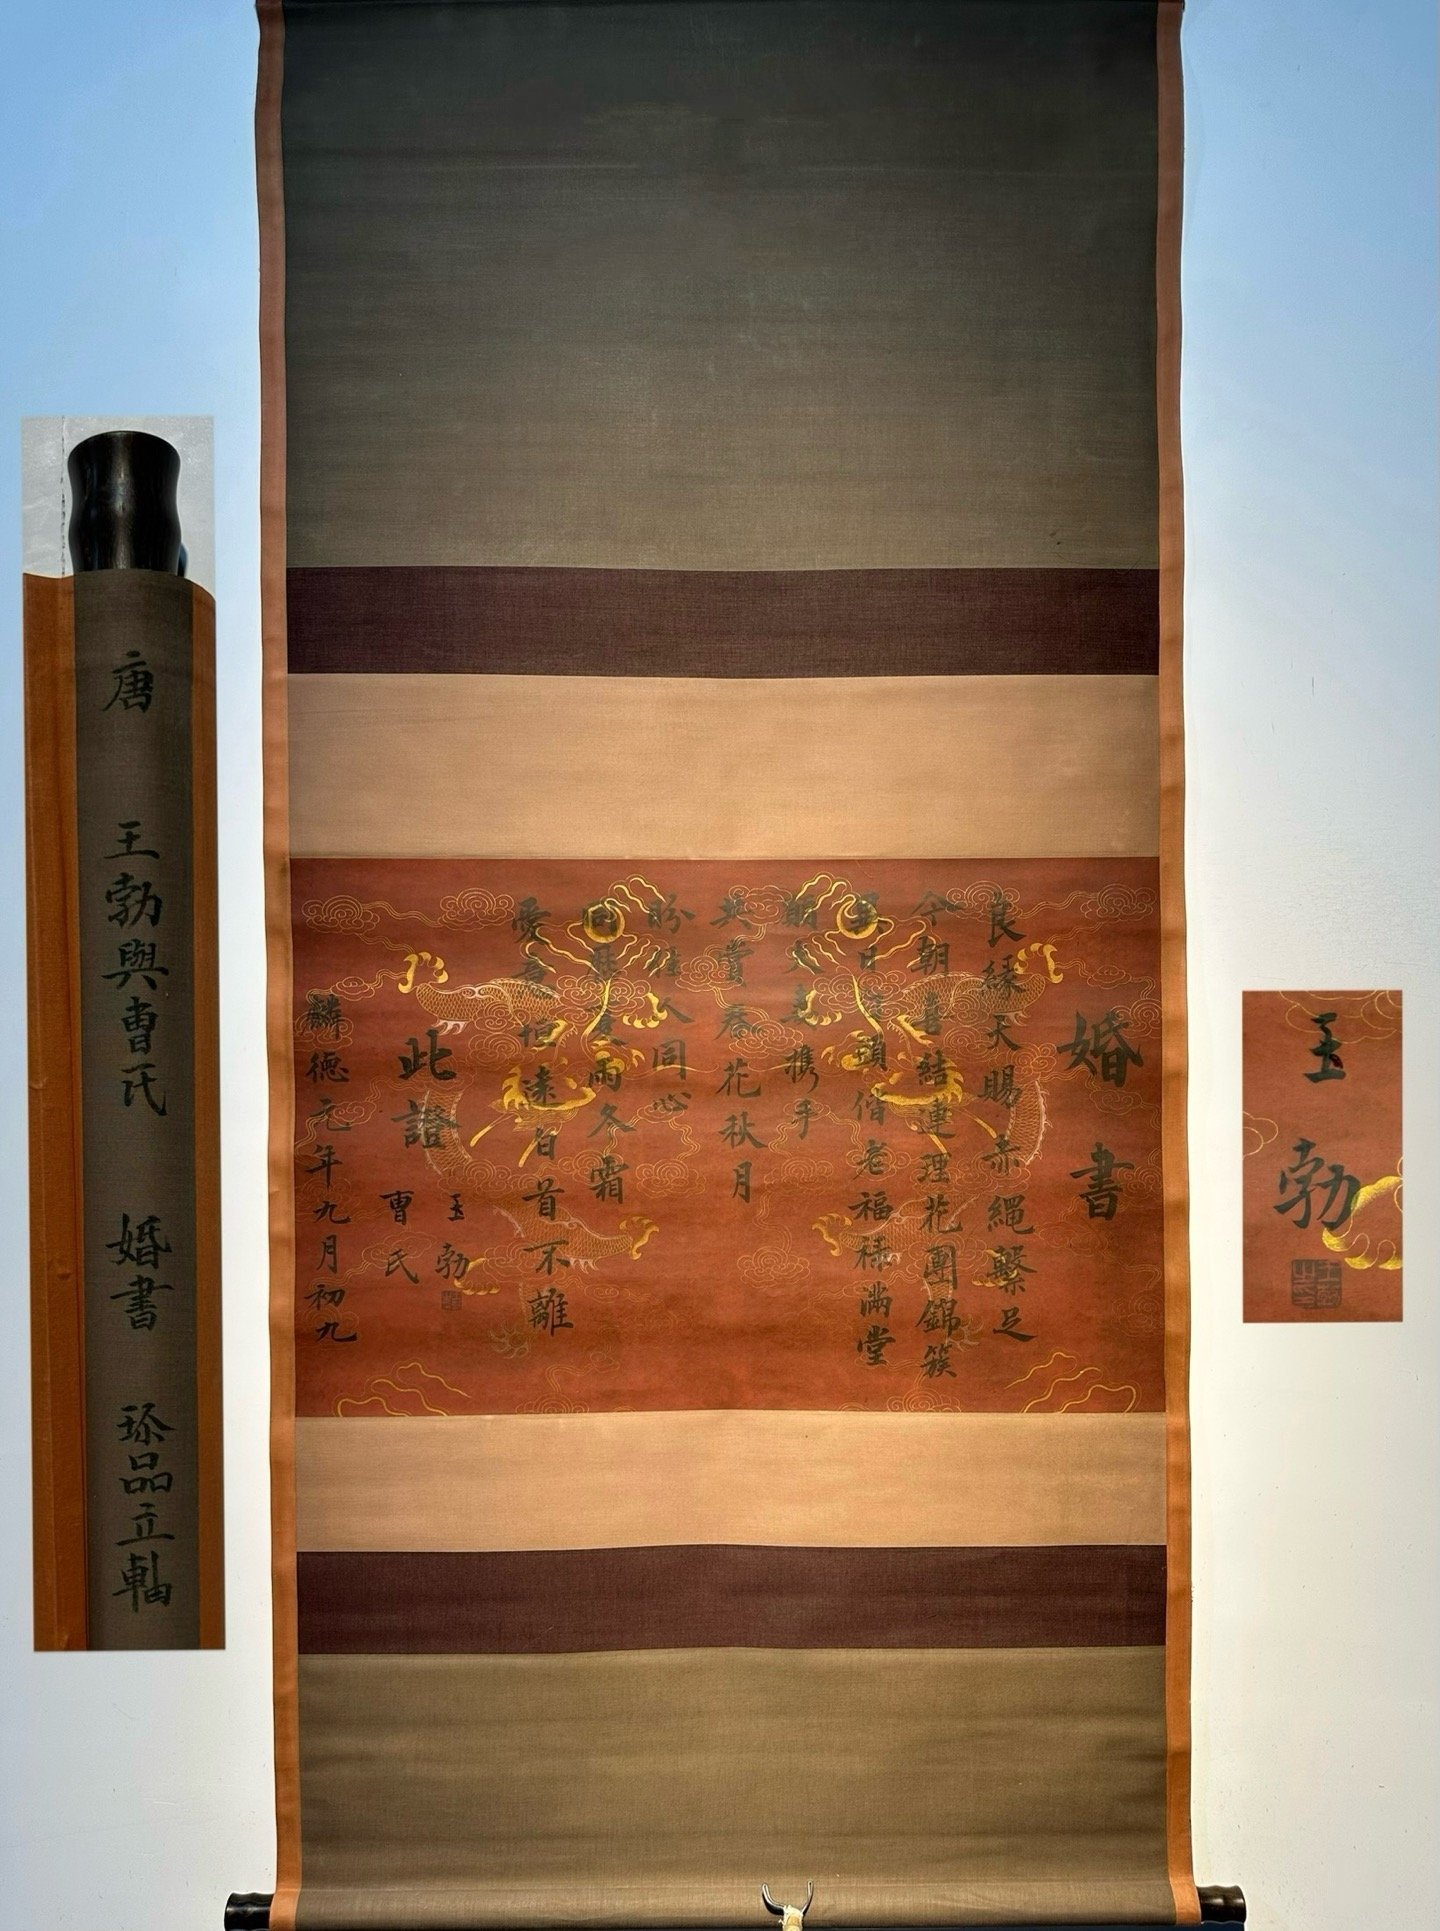 唐 王勃與曹氏 婚書 珎品立軸
婚書
良緣天賜赤繩繫足
今朝喜結連理花團錦簇
他日白頭偕老福祿滿堂
朝夕攜手
共賞春花秋月
盼雅人同心
同歷夏雨冬霜
愛意恒遠白首不離
此證
王勃
曹氏
麟德元年九月初九
王勃